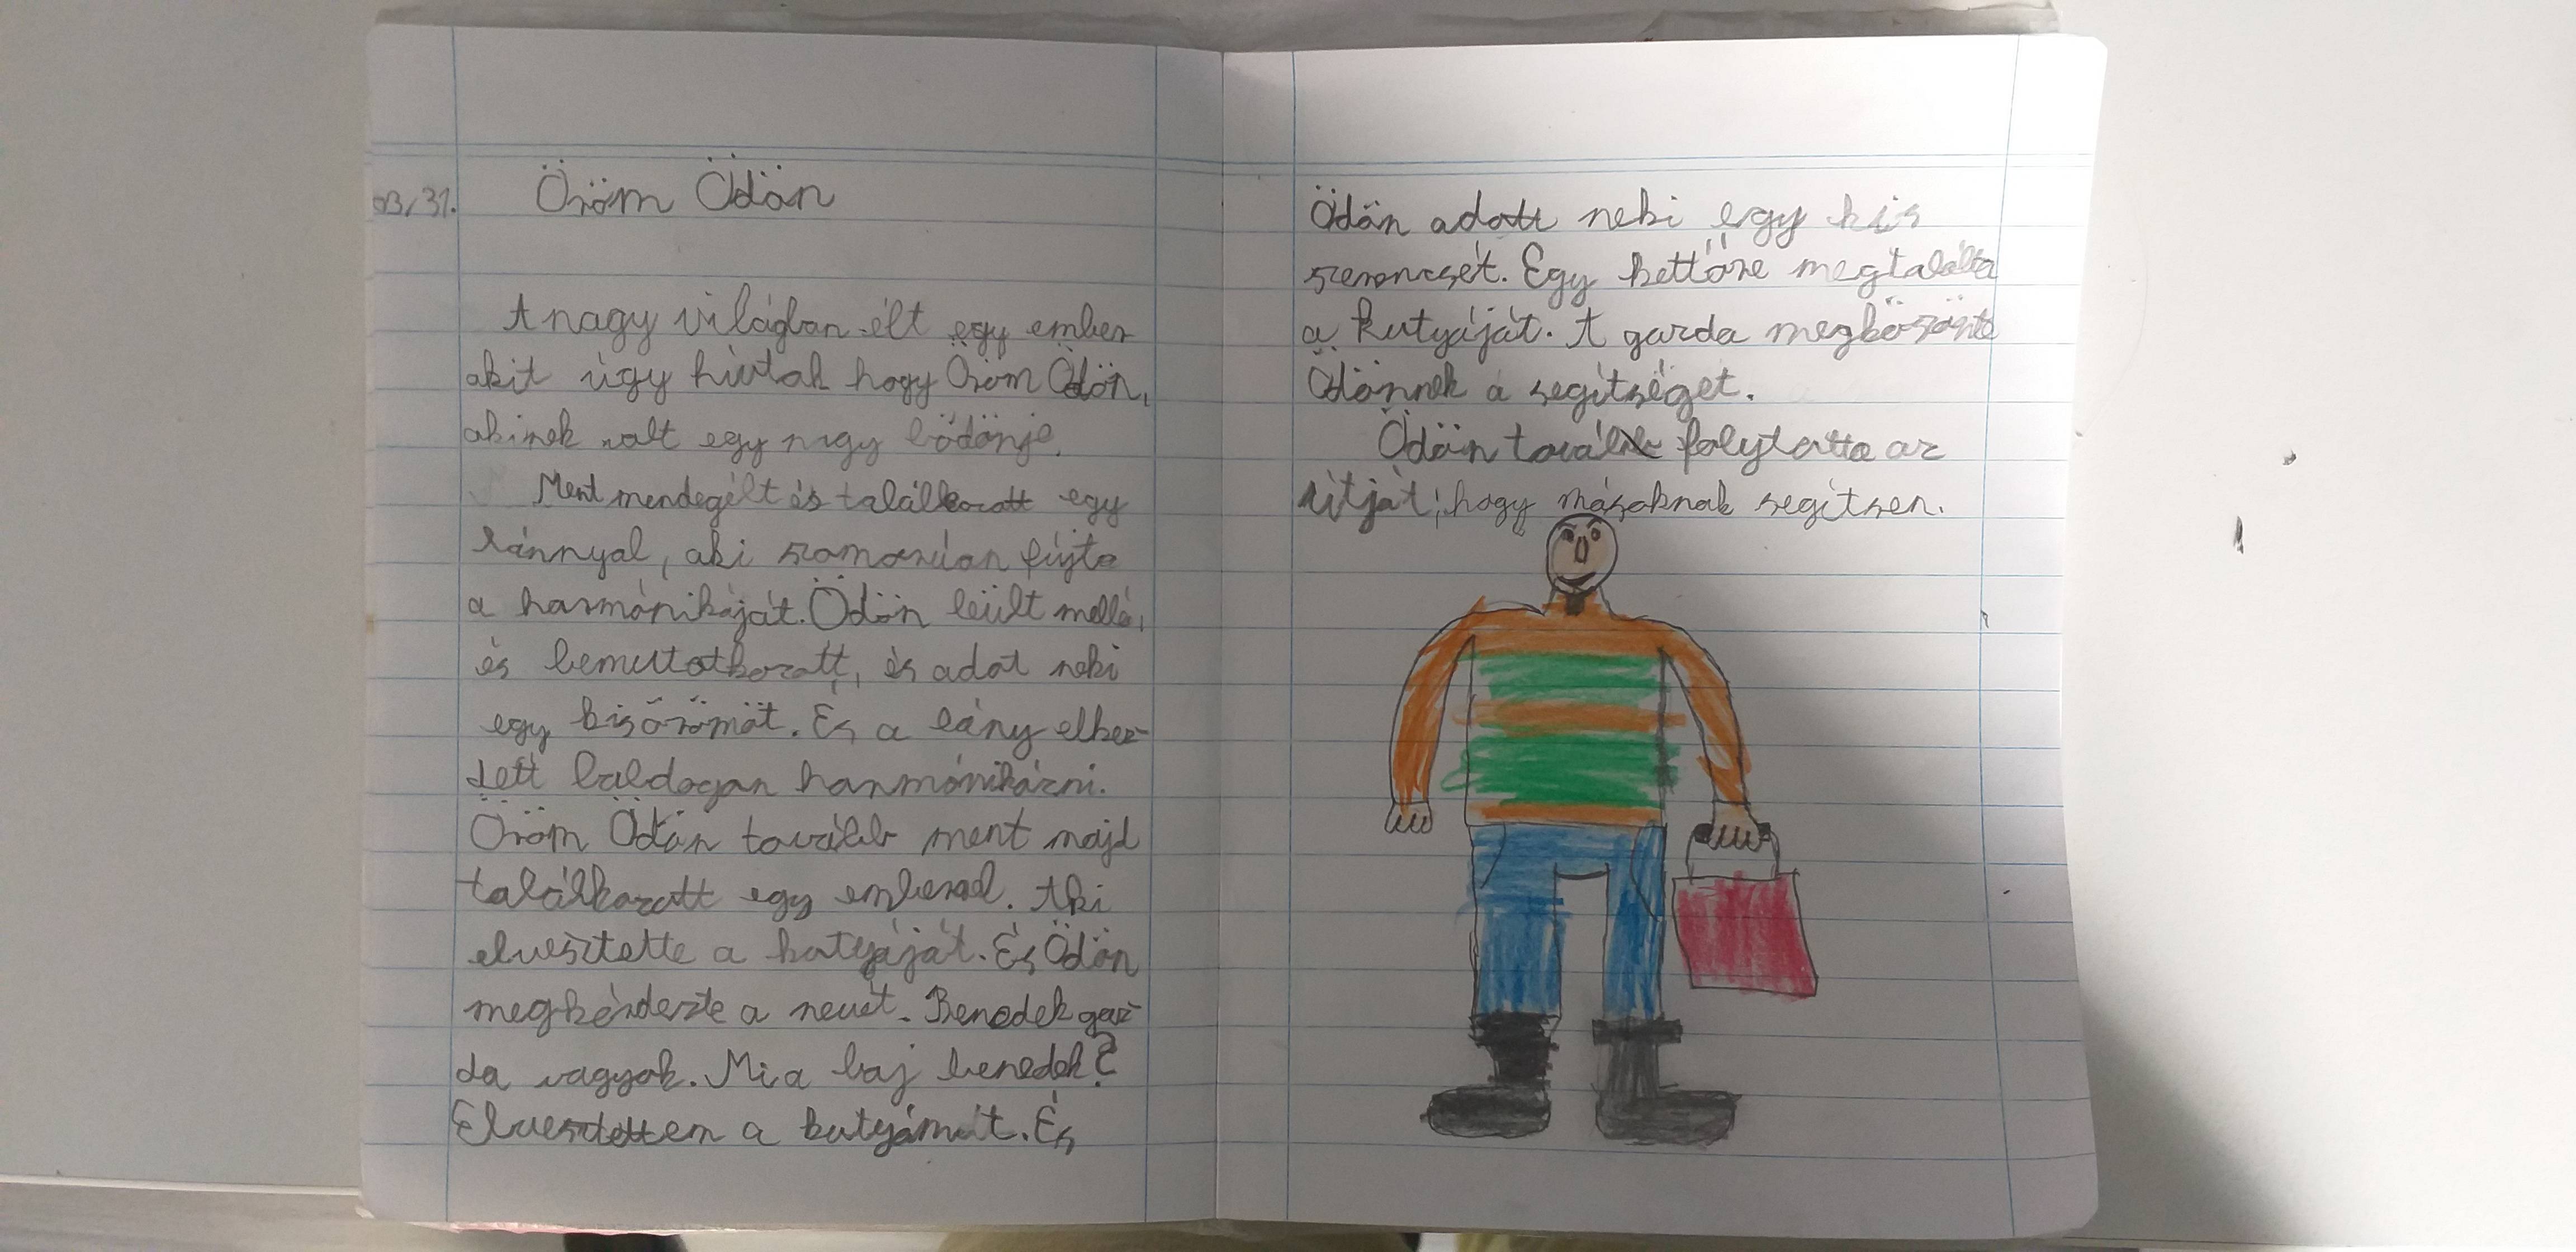 03/31.
Öröm Ödön
A nagy világban élt egy ember
akit úgy hívtak hogy Öröm Ödön,
akinek volt egy nagy bödönje.
Ment mendegélt és találkozott egy
lánnyal, aki szomorúan fújta
a harmónikáját. Ödön leült mellé,
és bemutatkozott, és adot neki
egy kis örömöt. És a lány elkez-
dett boldogan harmónikázni.
Öröm Ödön tovább ment majd
találkozott egy emberrel. Aki
elvesztette a kutyáját. És Ödön
megkérdezte a nevét. Benedek gaz-
da vagyok. Mi a baj benedek?
Elvesztettem a kutyámat. És
Ödön adott neki egy kis
szerencsét. Egy kettőre megtalálta
a kutyáját. A gazda megköszönte
Ödönnek a segítséget.
Ödön tovább folytatta az
útját, hogy másoknak segítsen.